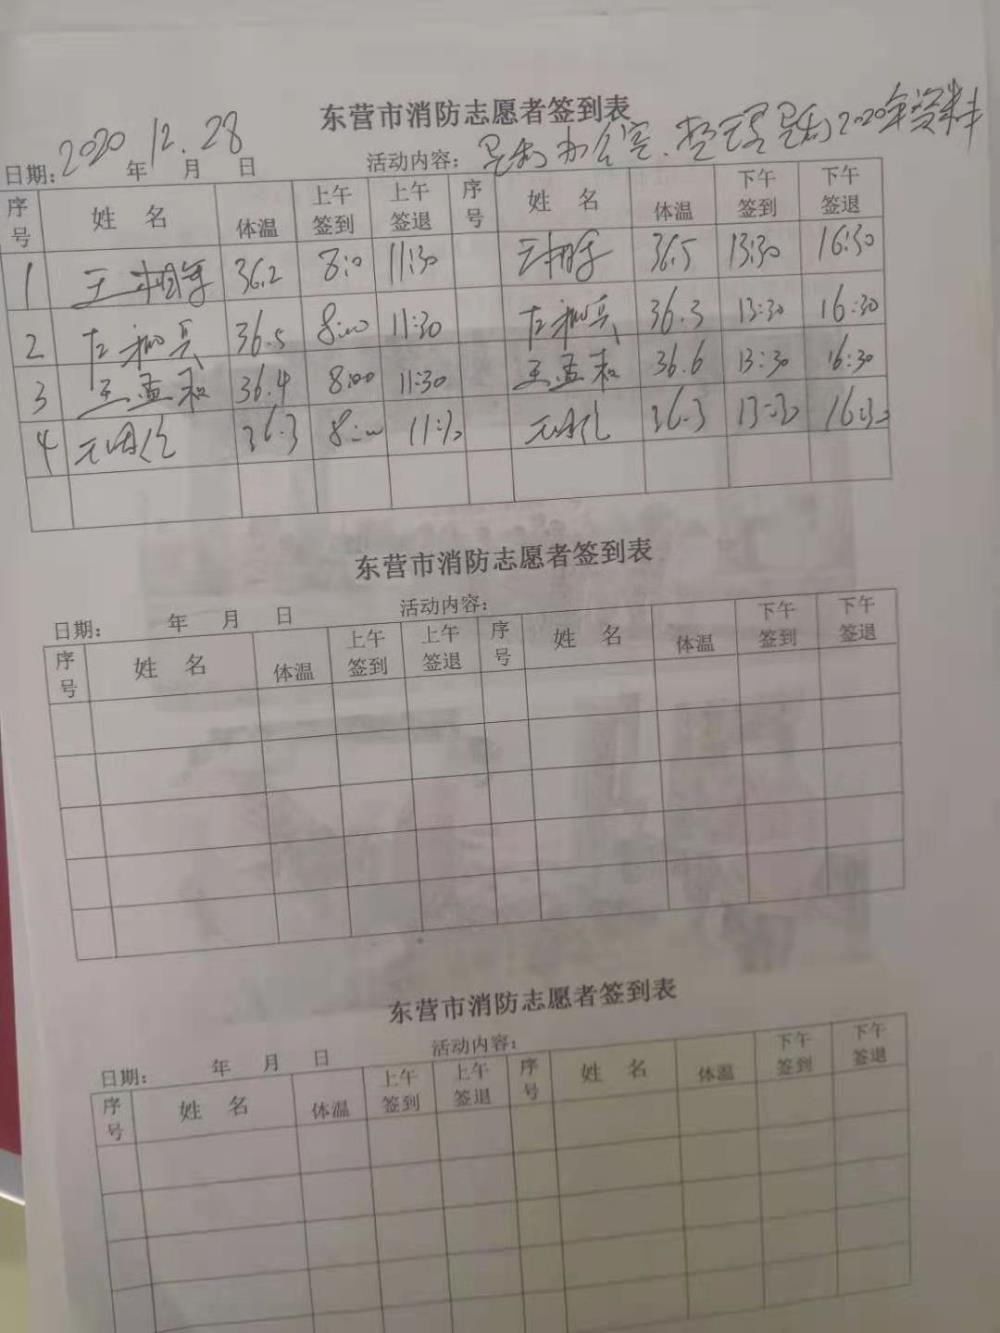 东营市消防志愿者签到表
日期: 2020年12.月28日 活动内容: 办公室. 整理 2020年资料
序号 姓名 体温 上午签到 上午签退 序号 姓名 体温 下午签到 下午签退
1 王相 36.2 8:0 11:30 王相 36.5 13:30 16:30
2 左 兵 36.5 8:00 11:30 左 兵 36.3 13:30 16:30
3 王孟和 36.4 8:00 11:30 王孟和 36.6 13:30 16:30
4 36.3 8:00 11:30 36.3 13:30 16:30
东营市消防志愿者签到表
日期: 年 月 日 活动内容:
序号 姓名 体温 上午签到 上午签退 序号 姓名 体温 下午签到 下午签退
东营市消防志愿者签到表
日期: 年 月 日 活动内容:
序号 姓名 体温 上午签到 上午签退 序号 姓名 体温 下午签到 下午签退